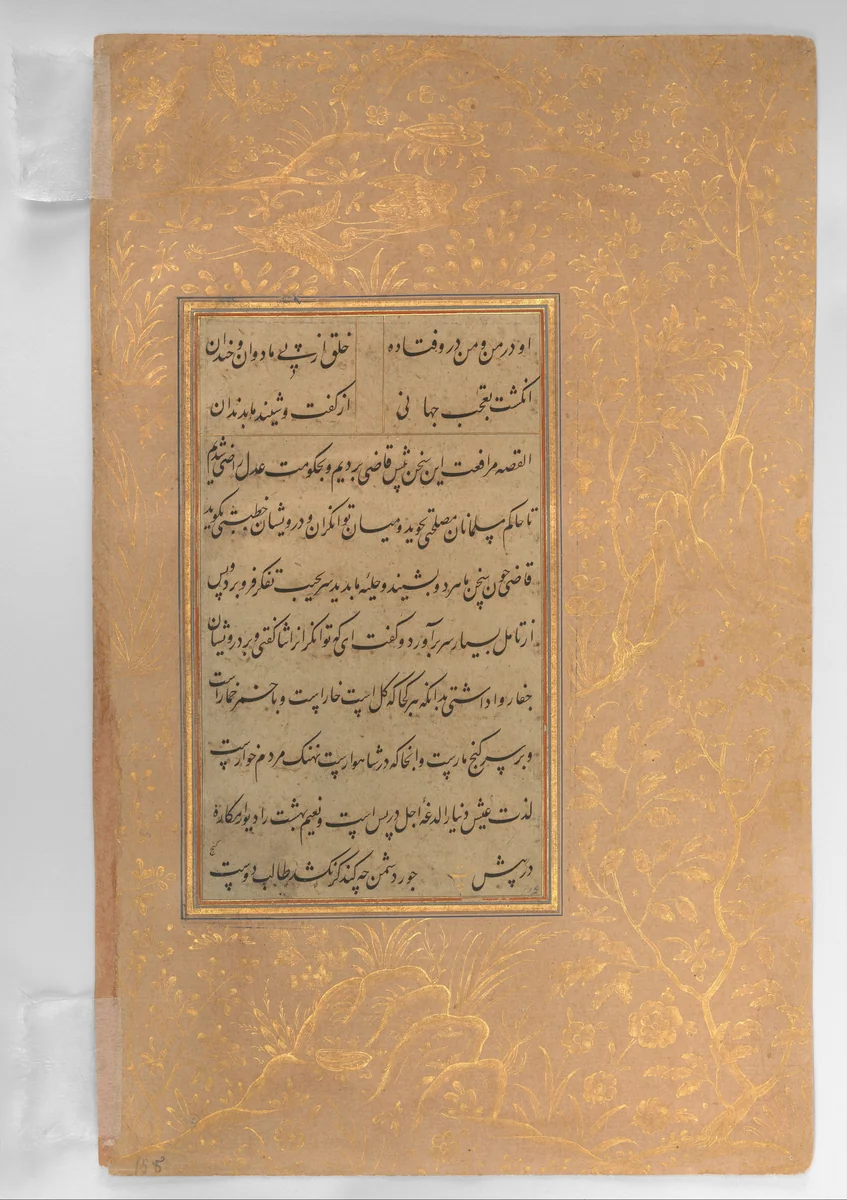 او در من و من درو فتاده خلق از پی ما دوان و خندان
انگشت تعجب جهانی از گفت و شنید ما بدندان
القصه مرافعت این سخن پیش قاضی بردیم و بحکومت عدل راضی شدیم
تا حاکم مسلمانان مصلحتی بجوید و میان توانکران و درویشان خطبتی بگوید
قاضی چون سخن ما هر دو بشنید و حلیه ما بدید سر بجیب تفکر فرو برد و پس
از تامل بسیار سر برآورد و گفت ای که توانکرانرا ثنا گفتی و بر درویشان
جفا روا داشتی بدانکه هر کجا که گل است خارست و با خمر خمارست
و بر سر گنج مارست و آنجا که در شاهوارست نهنک مردم خوارست
لذت عیش دنیا را لدغه اجل در پس است و نعیم بهشت را دیوار مکاره
در پیش جور دشمن چه کند گر نکشد طالب دوست
گنج
158